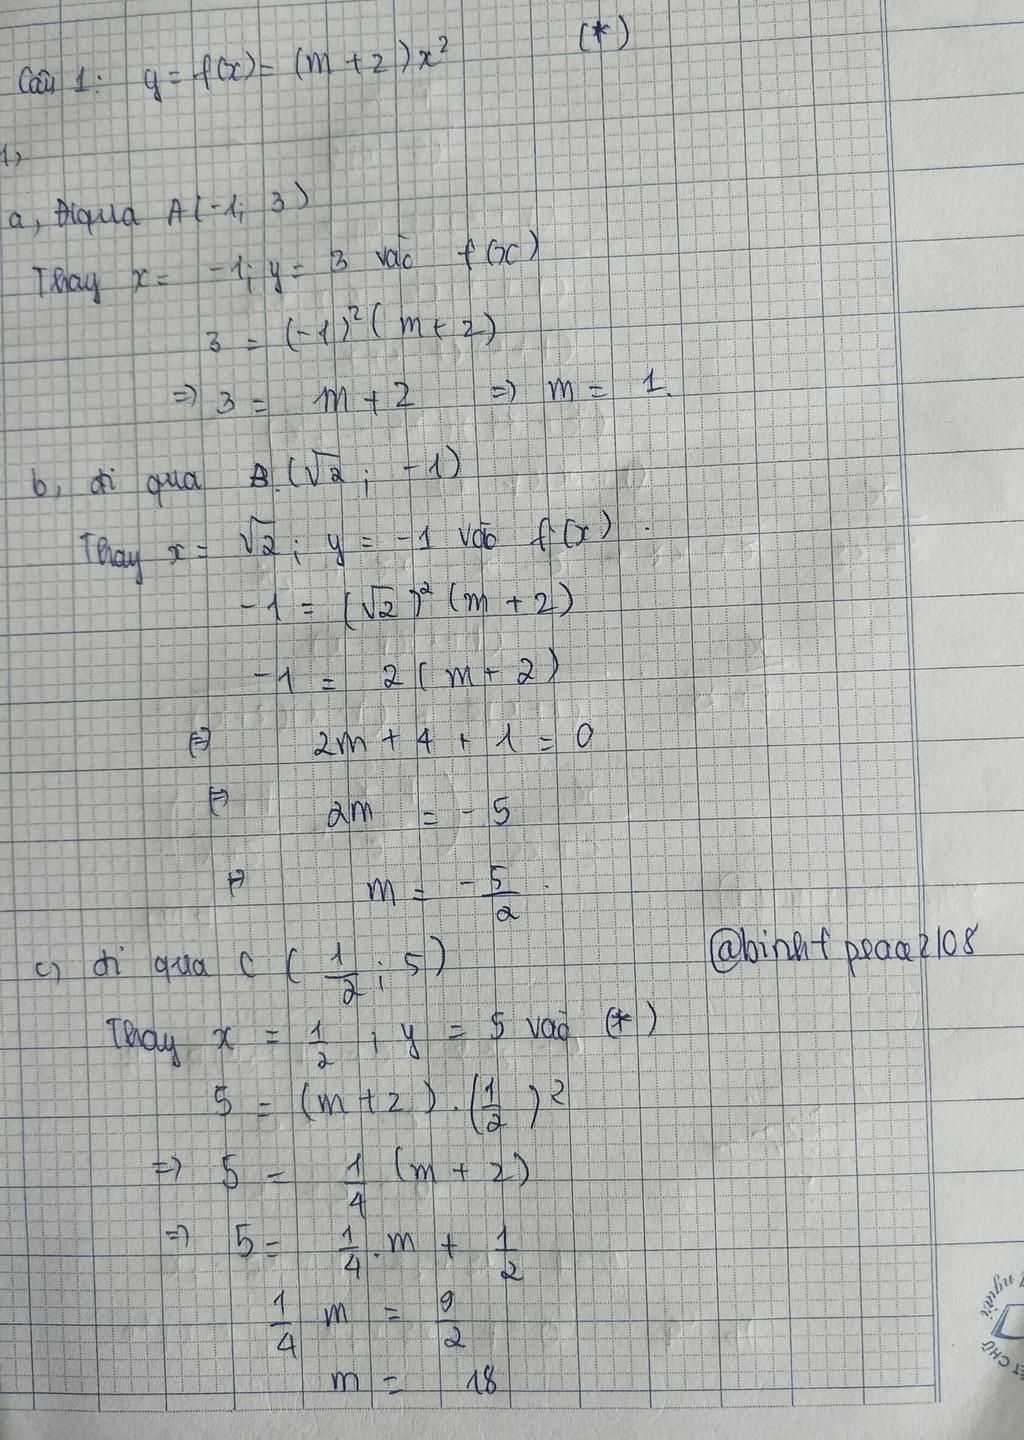 Câu 1: y = f(x) = (m + 2)x² (*)
1,
a, Đi qua A(-1; 3)
Thay x = -1; y = 3 vào f(x)
3 = (-1)² (m + 2)
=> 3 = m + 2 => m = 1.
b, đi qua B (√2; -1)
Thay x = √2; y = -1 vào f(x).
-1 = (√2)² (m + 2)
-1 = 2(m + 2)
⇔ 2m + 4 + 1 = 0
⇔ 2m = -5
⇔ m = -5/2.
c, đi qua C (1/2; 5)
Thay x = 1/2; y = 5 vào (*)
5 = (m + 2).(1/2)²
=> 5 = 1/4 (m + 2)
=> 5 = 1/4.m + 1/2
1/4 m = 9/2
m = 18
người
ẾT CHỮ